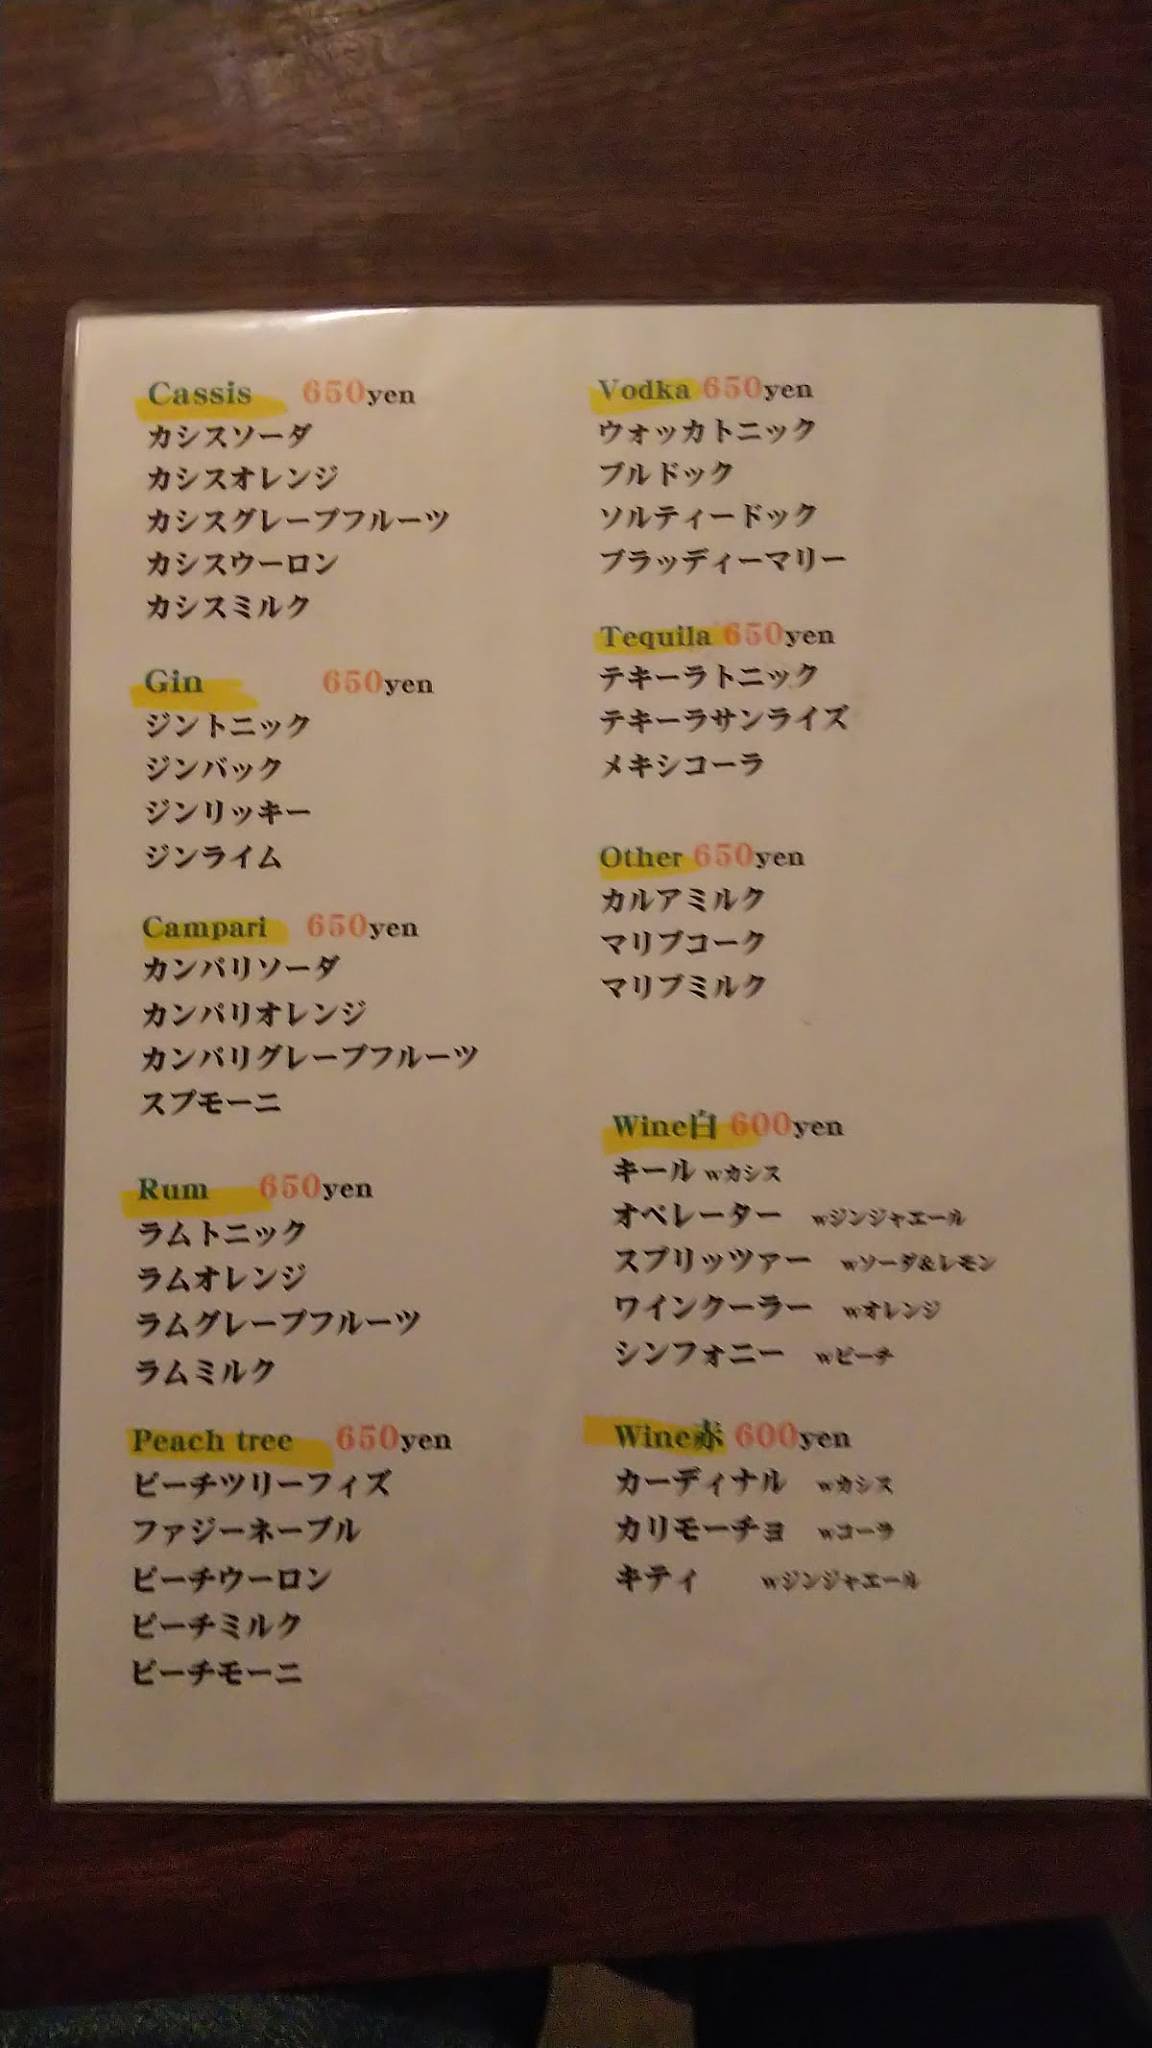 Cassis 650yen
カシスソーダ
カシスオレンジ
カシスグレープフルーツ
カシスウーロン
カシスミルク
Gin 650yen
ジントニック
ジンバック
ジンリッキー
ジンライム
Campari 650yen
カンパリソーダ
カンパリオレンジ
カンパリグレープフルーツ
スプモーニ
Rum 650yen
ラムトニック
ラムオレンジ
ラムグレープフルーツ
ラムミルク
Peach tree 650yen
ピーチツリーフィズ
ファジーネーブル
ピーチウーロン
ピーチミルク
ピーチモーニ
Vodka 650yen
ウォッカトニック
ブルドック
ソルティードック
ブラッディーマリー
Tequila 650yen
テキーラトニック
テキーラサンライズ
メキシコーラ
Other 650yen
カルアミルク
マリブコーク
マリブミルク
Wine白 600yen
キール wカシス
オペレーター wジンジャエール
スプリッツァー wソーダ&レモン
ワインクーラー wオレンジ
シンフォニー wピーチ
Wine赤 600yen
カーディナル wカシス
カリモーチョ wコーラ
キティ wジンジャエール